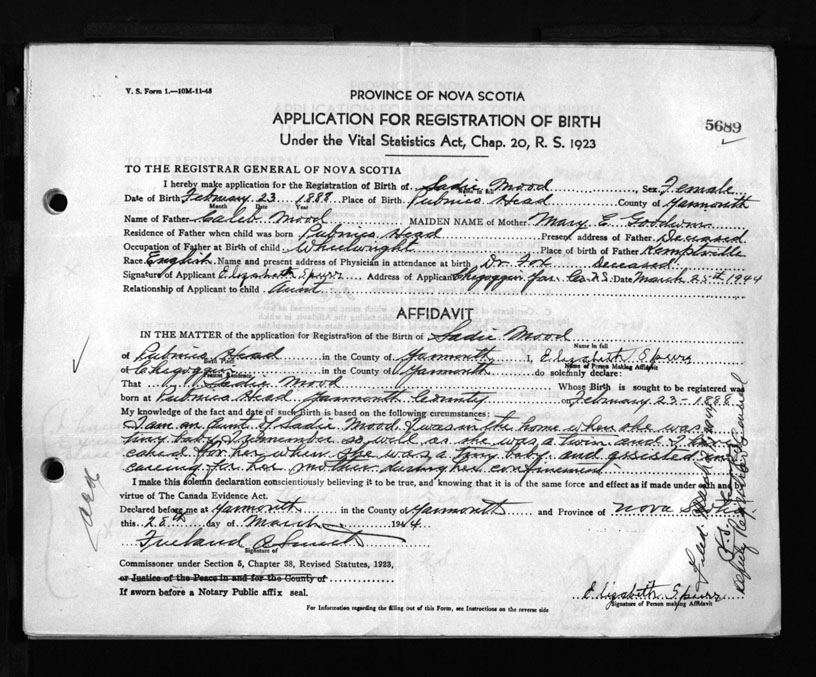 V. S. Form 1.—10M-11-43
PROVINCE OF NOVA SCOTIA
APPLICATION FOR REGISTRATION OF BIRTH
5689
Under the Vital Statistics Act, Chap. 20, R. S. 1923
TO THE REGISTRAR GENERAL OF NOVA SCOTIA
I hereby make application for the Registration of Birth of Sadie Mood Sex Female
Name in full
Date of Birth February 23 1888 Place of Birth Pubnico Head County of Yarmouth
Month Date Year
Name of Father Caleb Mood MAIDEN NAME of Mother Mary E. Goodwin
Residence of Father when child was born Pubnico Head Present address of Father Deceased
Occupation of Father at Birth of child Wheelwright Place of birth of Father Kemptville
Race English Name and present address of Physician in attendance at birth Dr. Fox Deceased
Signature of Applicant Elizabeth Spurr Address of Applicant Chegoggin Yar. Co. N.S. Date March 25th 1944
Relationship of Applicant to child Aunt
AFFIDAVIT
IN THE MATTER of the application for Registration of the Birth of Sadie Mood
Name in full
of Pubnico Head in the County of Yarmouth I, Elizabeth Spurr
Birth Place Name of Person Making Affidavit
of Chegoggin in the County of Yarmouth do solemnly declare:
Present Residence
That Sadie Mood Whose Birth is sought to be registered was
born at Pubnico Head Yarmouth County on February 23 - 1888
My knowledge of the fact and date of such Birth is based on the following circumstances:
I am an Aunt of Sadie Mood. I was in the home when she was
tiny baby. I remember so well as she was a twin and I
cared for her when she was a tiny baby and assisted in
caring for her mother during her confinement.
I make this solemn declaration conscientiously believing it to be true, and knowing that it is of the same force and effect as if made under oath and
virtue of The Canada Evidence Act.
Declared before me at Yarmouth in the County of Yarmouth and Province of Nova Scotia
this 28th day of March 1944
Signature of
Commissioner under Section 5, Chapter 38, Revised Statutes, 1923,
or Justice of the Peace in and for the County of
If sworn before a Notary Public affix seal.
Elizabeth Spurr
Signature of Person making Affidavit
For Information regarding the filling out of this Form, see Instructions on the reverse side
Filed
Deputy Registrar General